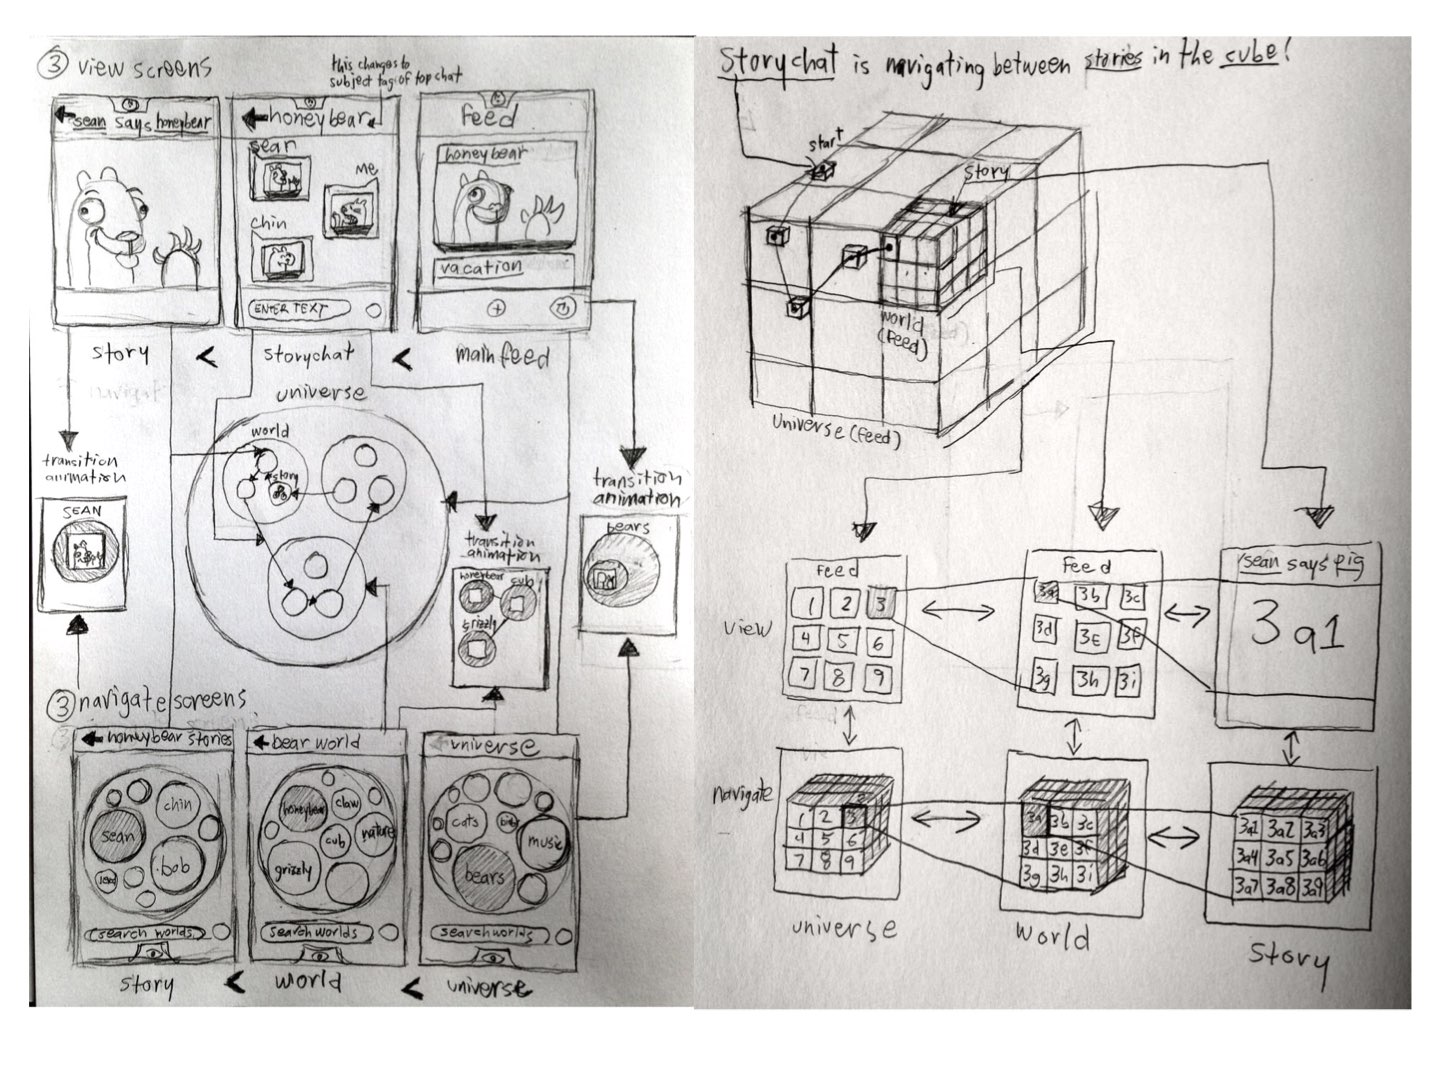 ③ view screens
this changes to
subject tag of top chat
sean says honeybear
honeybear
sean
me
chin
ENTER TEXT
Feed
honeybear
vacation
story < storychat < main feed
universe
world
story
transition
animation
SEAN
transition
animation
honeybear
cub
grizzly
transition
animation
bears
③ navigate screens
honeybear stories
chin
sean
bob
search worlds
bear world
honeybear
claw
cub
nature
grizzly
search worlds
universe
cats
music
bears
search worlds
story < world < universe
Storychat is navigating between stories in the cube!
start
story
world
(Feed)
Universe (feed)
view
Feed
1 2 3
4 5 6
7 8 9
Feed
3a 3b 3c
3d 3e 3f
3g 3h 3i
sean says pig
3a1
navigate
1 2 3
4 5 6
7 8 9
universe
3a 3b 3c
3d 3e 3f
3g 3h 3i
world
3a1 3a2 3a3
3a4 3a5 3a6
3a7 3a8 3a9
story